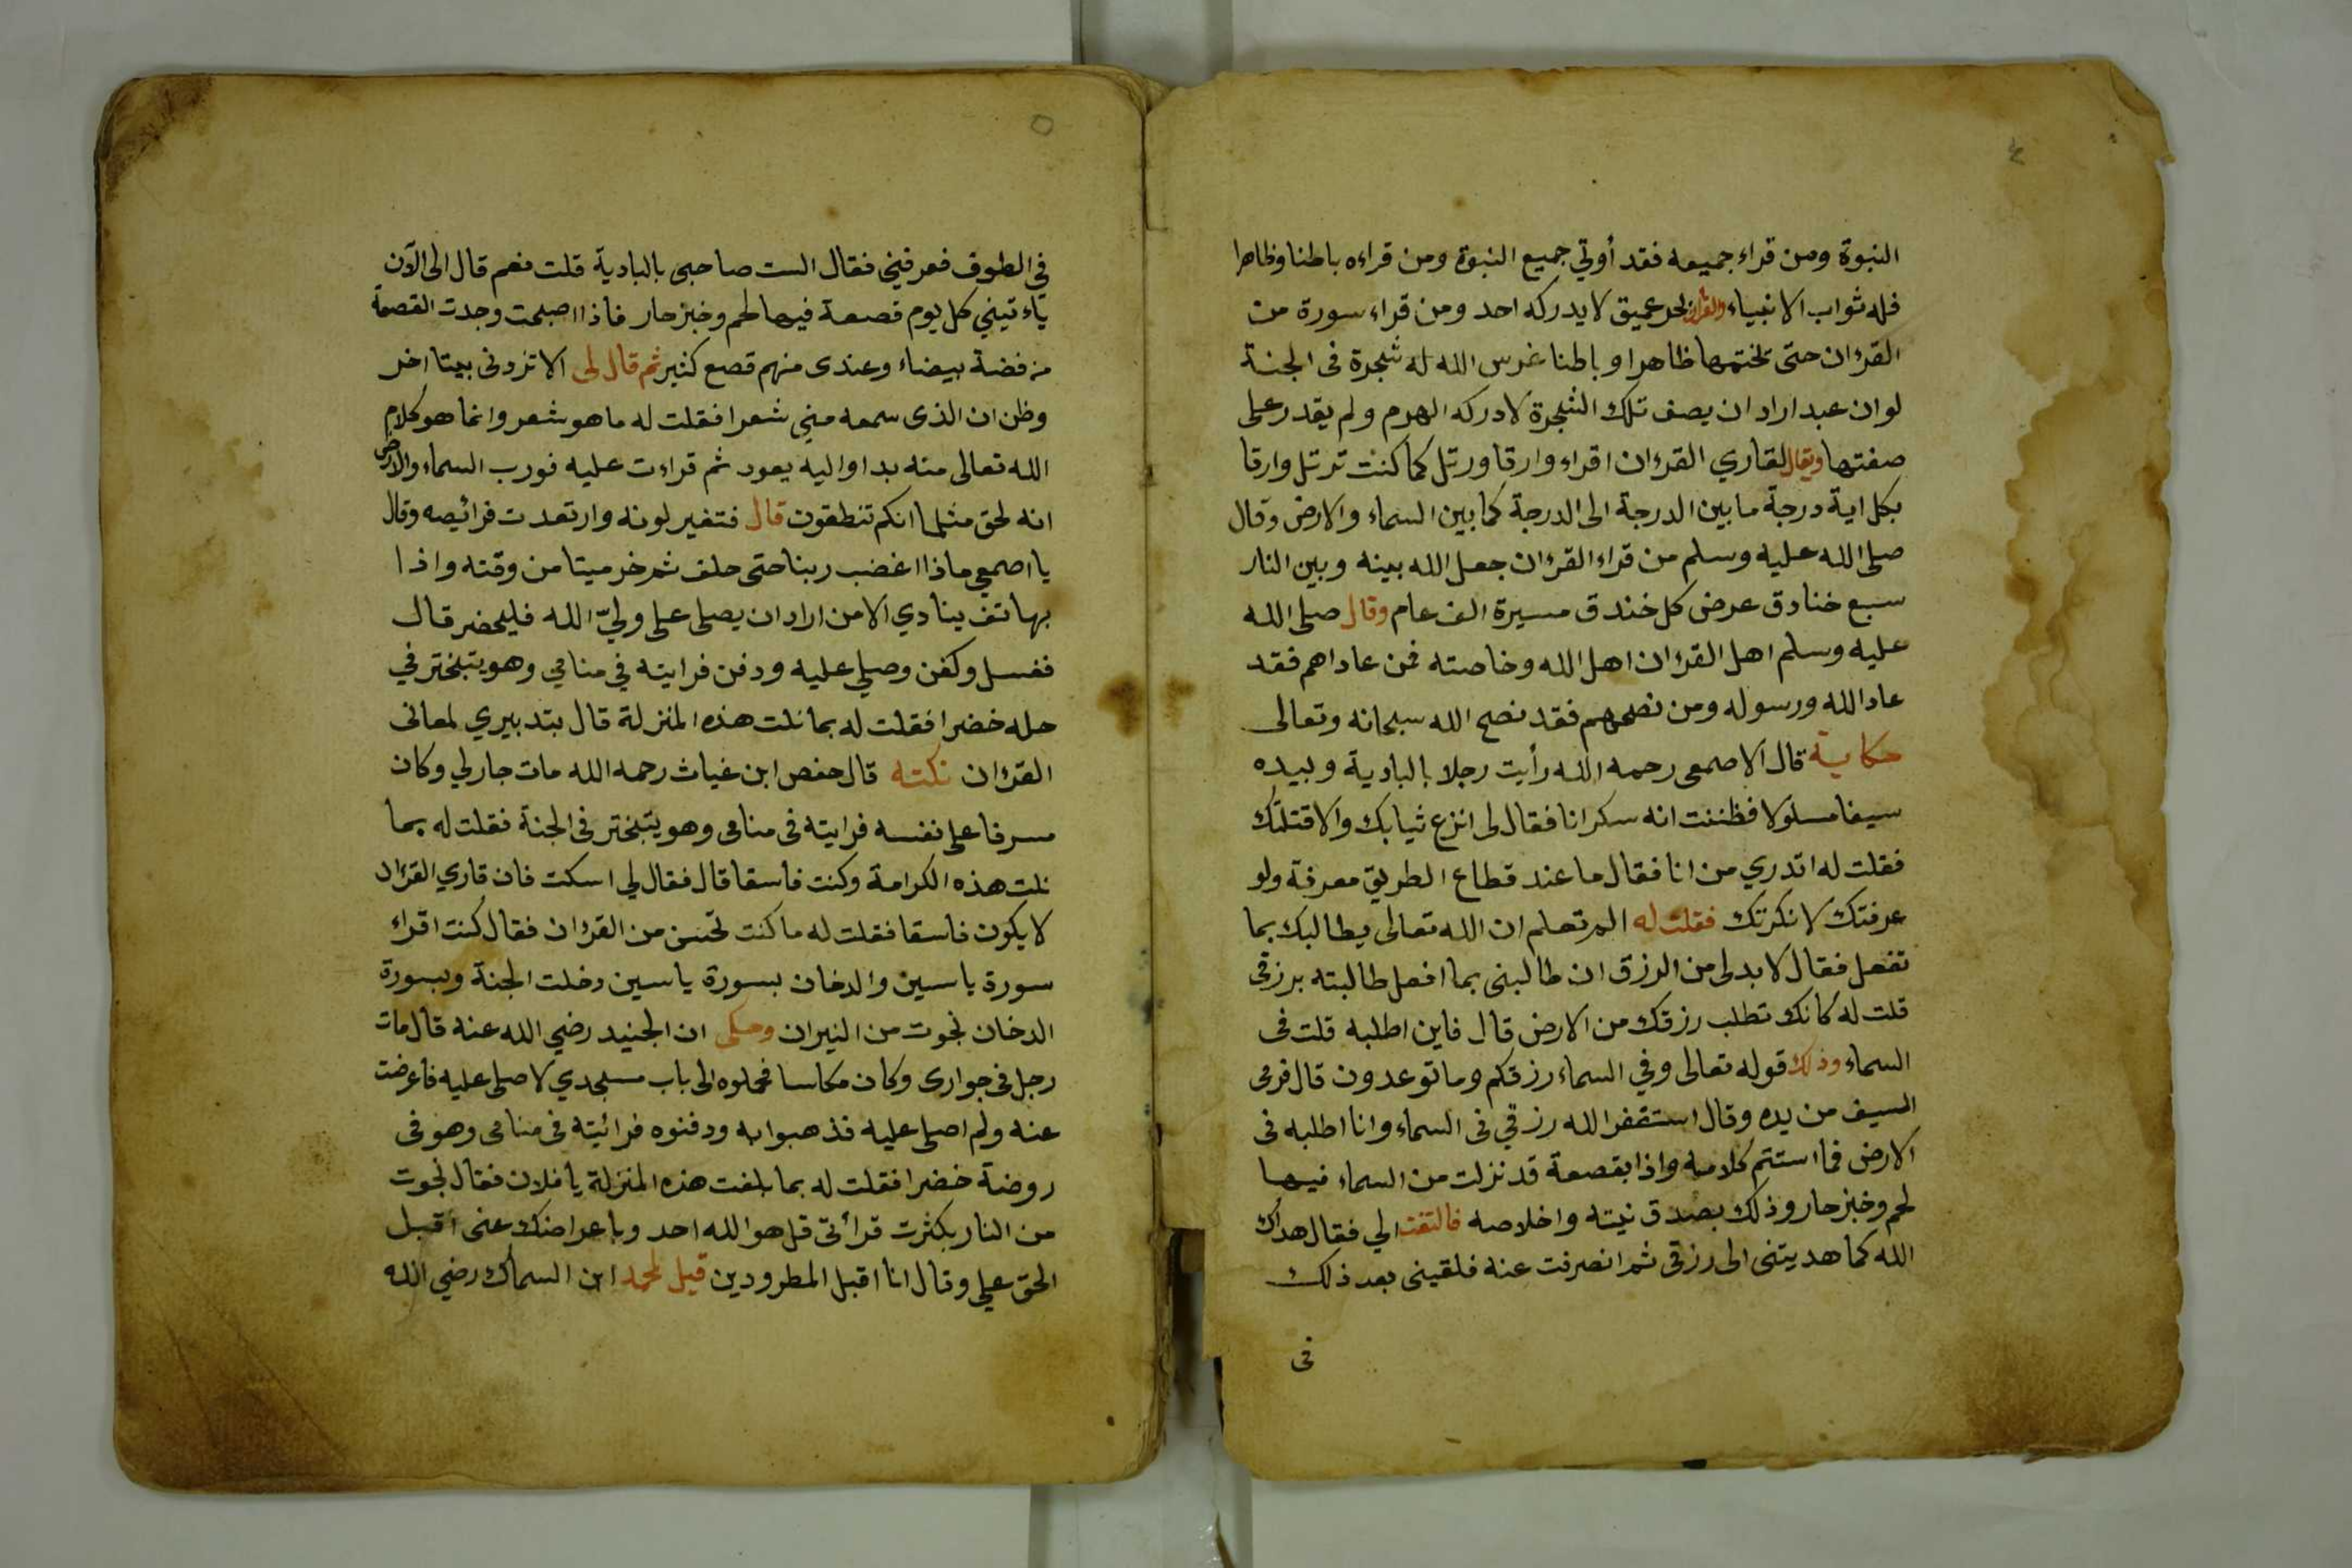 ٤
النبوة ومن قراء جميعه فقد أوتي جميع النبوة ومن قراءه باطنا وظاهرا
فله ثواب الانبياء والقرآن بحر عميق لا يدركه احد ومن قراء سورة من
القرءان حتى يختمها ظاهرا وباطنا غرس الله له شجرة فى الجنة
لو ان عبد اراد ان يصف تلك الشجرة لادركه الهرم ولم يقدر على
صفتها ويقال لقاري القرءان اقراء وارقا ورتل كما كنت ترتل وارقا
بكل اية درجة ما بين الدرجة الى الدرجة كما بين السماء والارض وقال
صلى الله عليه وسلم من قراء القرءان جعل الله بينه وبين النار
سبع خنادق عرض كل خندق مسيرة الف عام وقال صلى الله
عليه وسلم اهل القرءان اهل الله وخاصته فمن عاداهم فقد
عاد الله ورسوله ومن نصحهم فقد نصح الله سبحانه وتعالى
حكاية قال الاصمعى رحمه الله رأيت رجلا بالبادية وبيده
سيفا مسلولا فظننت انه سكرانا فقال لى انزع ثيابك والا قتلتك
فقلت له اتدري من انا فقال ما عند قطاع الطريق معرفة ولو
عرفتك لانكرتك فقلت له الم تعلم ان الله تعالى يطالبك بما
تفعل فقال لا بد لى من الرزق ان طالبنى بما افعل طالبته برزقى
قلت له كانك تطلب رزقك من الارض قال فاين اطلبه قلت فى
السماء وذلك قوله تعالى وفي السماء رزقكم وما توعدون قال فرمى
السيف من يده وقال استغفر الله رزقي فى السماء وانا اطلبه فى
الارض فما استتم كلامه واذا بقصعة قد نزلت من السماء فيها
لحم وخبز حار وذلك بصدق نيته واخلاصه فالتفت الي فقال هداك
الله كما هديتنى الى رزقى ثم انصرفت عنه فلقينى بعد ذلك
فى
٥
في الطوف فعرفني فقال الست صاحبى بالبادية قلت نعم قال الى الآن
ياءتيني كل يوم قصعة فيها لحم وخبز حار فاذا اصبحت وجدت القصعة
من فضة بيضاء وعندى منهم قصع كثير ثم قال لى الا تزدونى بيتا اخر
وظن ان الذى سمعه مني شعرا فقلت له ما هو شعر وانما هو كلام
الله تعالى منه بدا واليه يعود ثم قراءت عليه فورب السماء والارض
انه لحق مثلما انكم تنطقون قال فتغير لونه وارتعدت فرائيصه وقال
يا اصمعي ماذا اغضب ربنا حتى حلف ثم خر ميتا من وقته واذا
بهاتف ينادي الا من اراد ان يصلى على وليّ الله فليحضر قال
فغسل وكفن وصلي عليه ودفن فرايته في منامي وهو يتبختر في
حله خضرا فقلت له بما نلت هذه المنزلة قال بتدبيري لمعانى
القرءان نكته قال حفص ابن غياث رحمه الله مات جار لي وكان
مسرفا على نفسه فرايته فى منامى وهو يتبختر فى الجنة فقلت له بما
نلت هذه الكرامة وكنت فاسقا قال فقال لي اسكت فان قاري القرءان
لا يكون فاسقا فقلت له ما كنت تحسن من القرءان فقال كنت اقراء
سورة ياسين والدخان بسورة ياسين دخلت الجنة وبسورة
الدخان نجوت من النيران وحكى ان الجنيد رضي الله عنه قال مات
رجل فى جوارى وكان مكاسا فحملوه الى باب مسجدي لاصلى عليه فاعرضت
عنه ولم اصلى عليه فذهبوا به ودفنوه فرائيته فى منامى وهو فى
روضة خضرا فقلت له بما بلغت هذه المنزلة يا فلان فقال نجوت
من النار بكثرت قرأتى قل هو الله احد وباعراضك عنى اقبل
الحق علي وقال انا اقبل المطرودين قيل لمحمد ابن السماك رضي الله